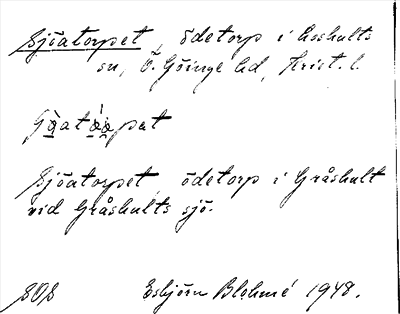 Sjöatorpet, ödetorp i Loshults
sn, Ö. Göinge hd, Krist. l.
Sjöatorpet ödetorp i Gråshult
vid Gråshults sjö.
SOS Esbjörn Blohmé 1948.